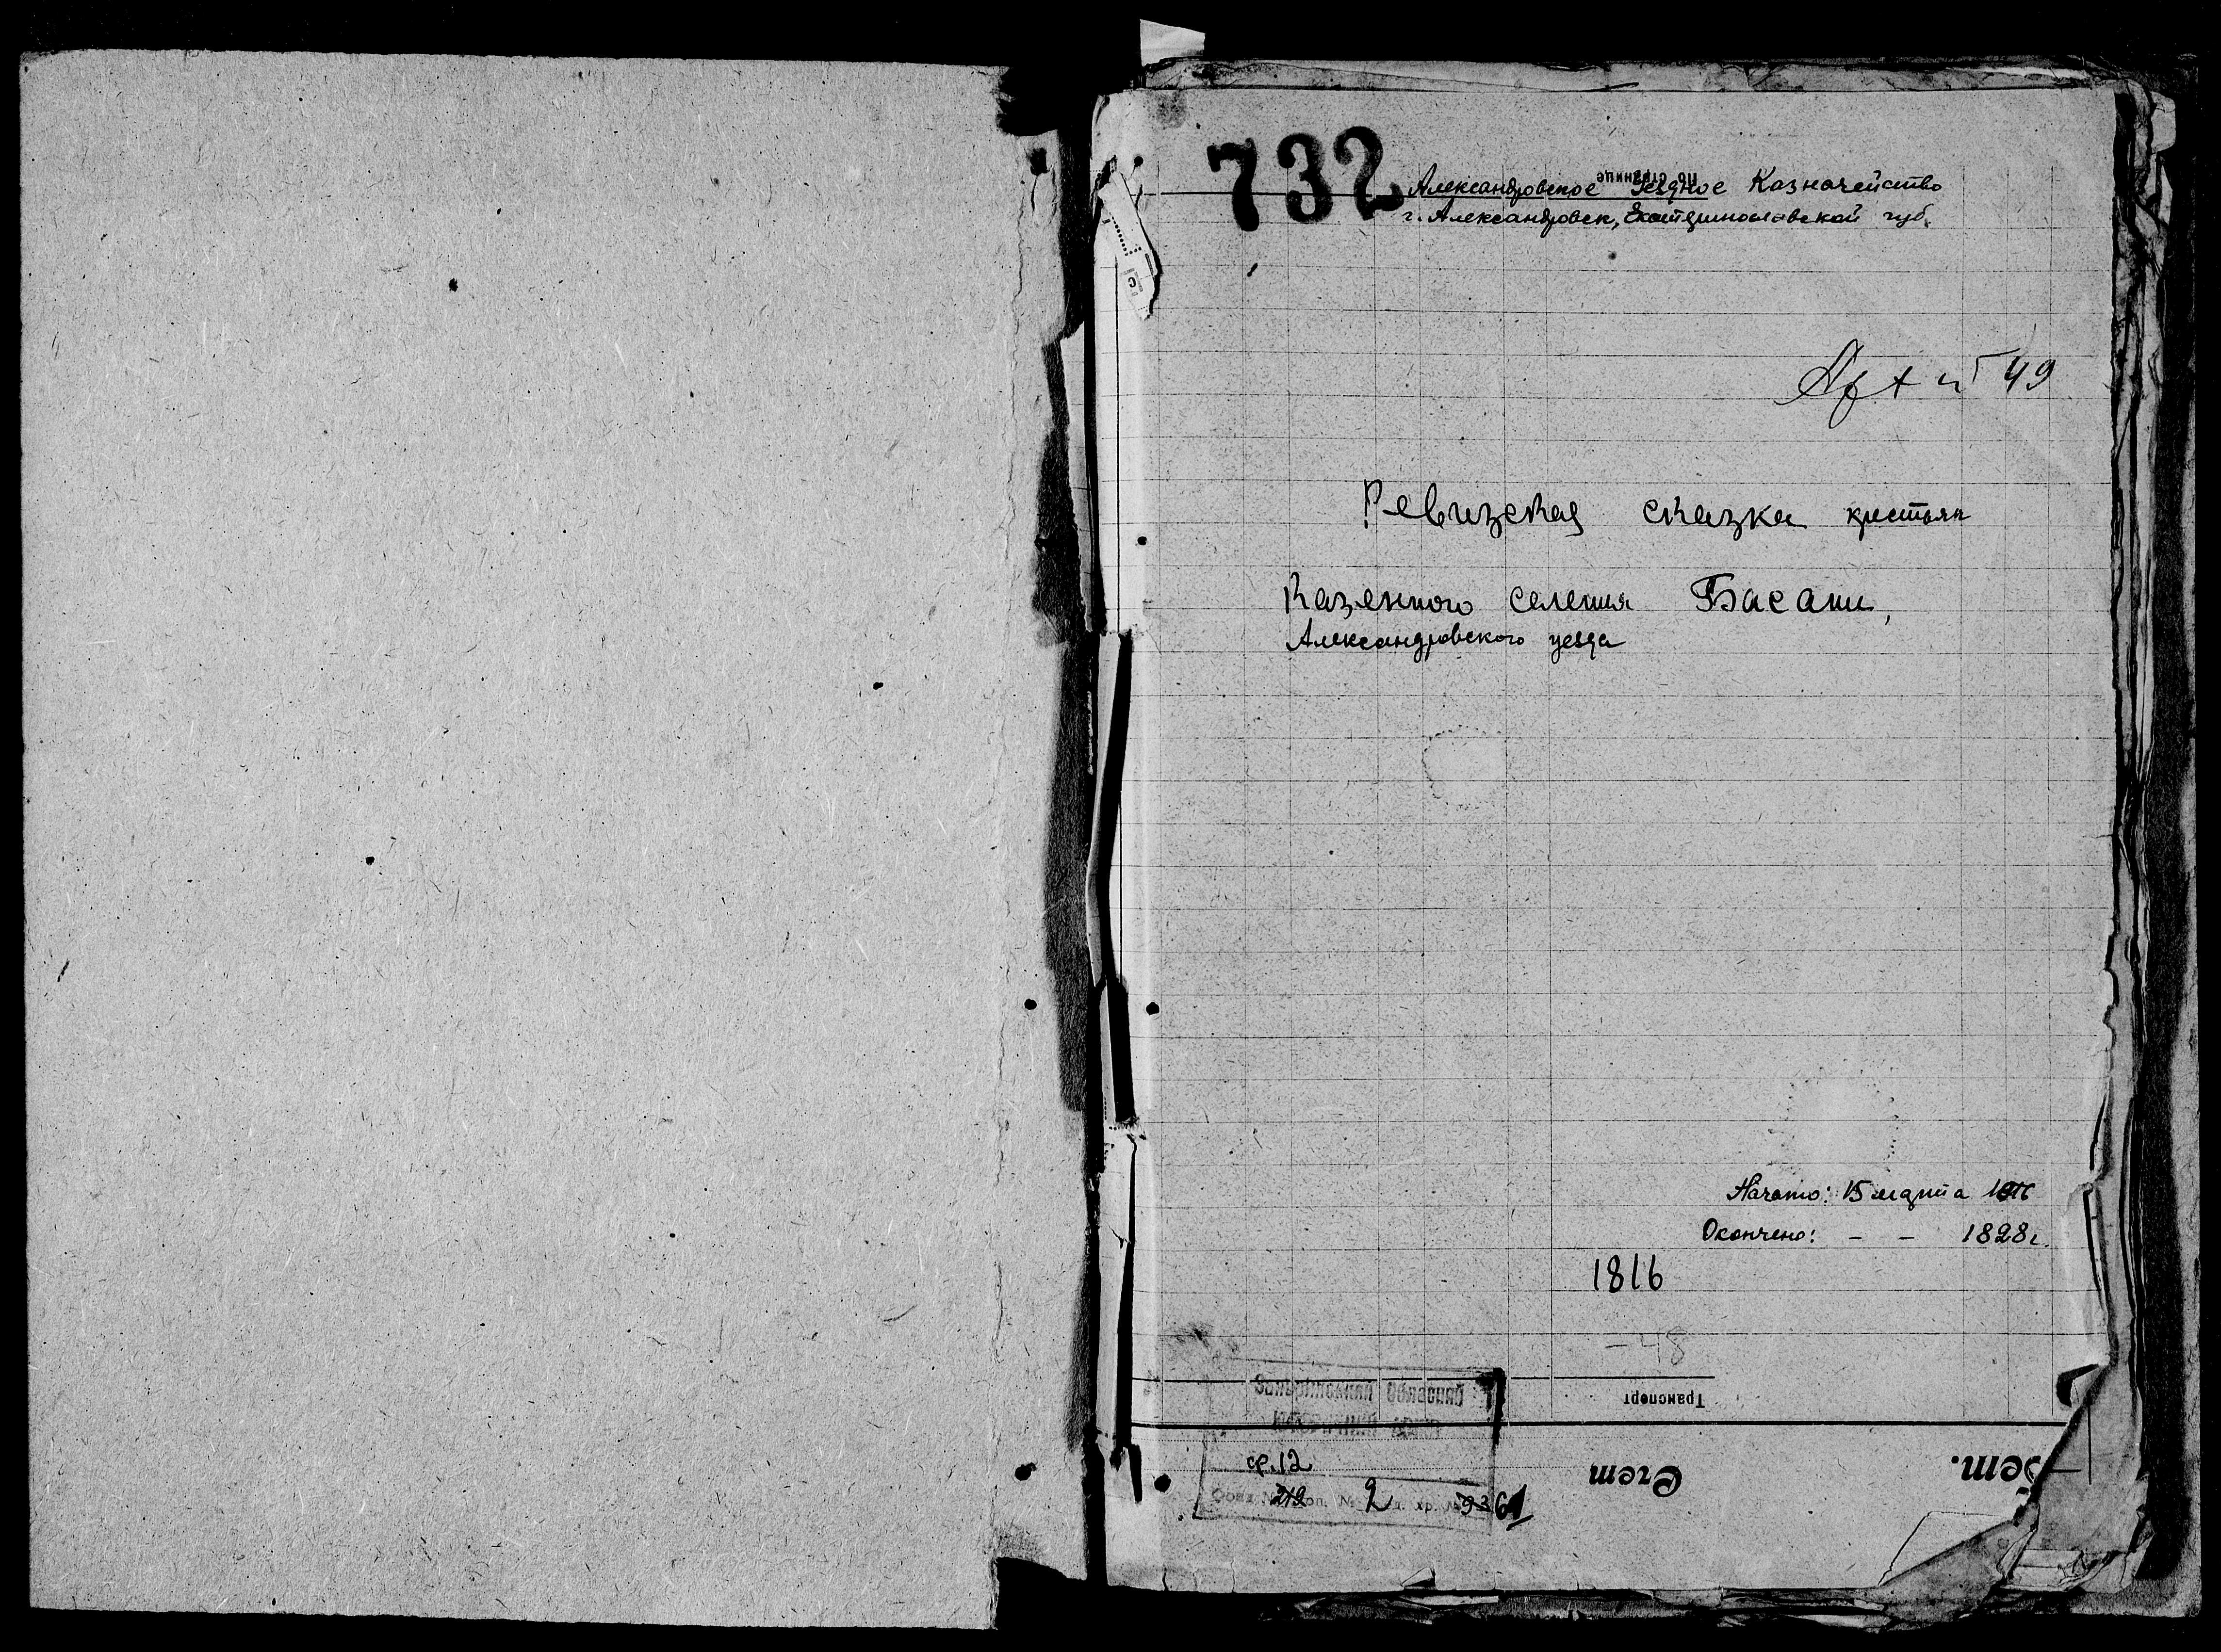 732
Александровское Уездное Казначейство
по странице
г. Александровск, Екатеринославской губ.
49
Ревизская сказка крестьян
Казенного селения Басани,
Александровского уезда
Начато: 15 марта 1816
Окончено: - - 1828 г.
1816
-48
Транспорт
Счет
ф. 12
Фонд № 219 оп. № 2 д. хр. №